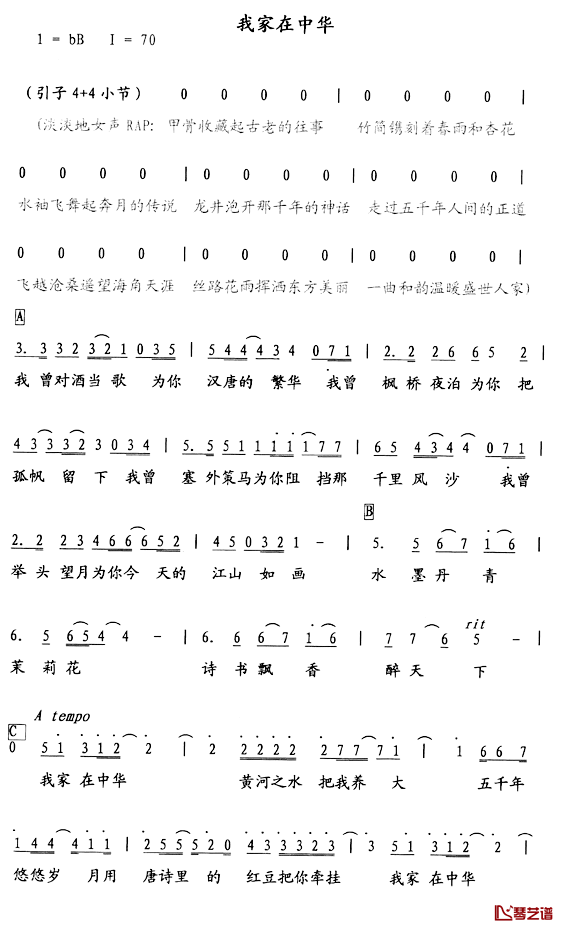 我家在中华
1 = bB I = 70
(引子 4+4 小节) 0 0 0 0 | 0 0 0 0 |
(淡淡地女声 RAP: 甲骨收藏起古老的往事 竹简镌刻着春雨和杏花
0 0 0 0 | 0 0 0 0 | 0 0 0 0 |
水袖飞舞起奔月的传说 龙井泡开那千年的神话 走过五千年人间的正道
0 0 0 0 | 0 0 0 0 | 0 0 0 0 |
飞越沧桑遥望海角天涯 丝路花雨挥洒东方美丽 一曲和韵温暖盛世人家)
A
3. 3 3 2 3 2 1 0 3 5 | 5 4 4 4 3 4 0 7 1 | 2. 2 2 6 6 5 2 |
我 曾对酒当歌 为你 汉唐的 繁华 我曾 枫桥夜泊为你 把
4 3 3 3 2 3 0 3 4 | 5. 5 5 1 1 1 1 1 1 7 7 | 6 5 4 3 4 4 0 7 1 |
孤帆 留 下 我曾 塞 外策马为你阻 挡那 千里 风 沙 我曾
B
2. 2 2 3 4 6 6 6 6 5 2 | 4 5 0 3 2 1 1 - | 5. 5 6 7 1 6 |
举 头 望月为你今 天的 江山 如 画 水 墨丹 青
rit
6. 5 6 5 4 4 - | 6. 6 6 7 1 6 | 7 7 6 5 - |
茉 莉 花 诗 书 飘 香 醉 天 下
A tempo
C
0 5 1 3 1 2 2 | 2 2 2 2 2 2 7 7 7 1 | 1 6 6 7
我家 在中华 黄河之水 把我养 大 五千年
1 4 4 4 1 1 | 2 5 5 5 2 0 4 3 3 3 2 3 | 3 5 1 3 1 2 2 |
悠悠岁 月用 唐诗里 的 红豆把你牵挂 我家 在中华
琴艺谱